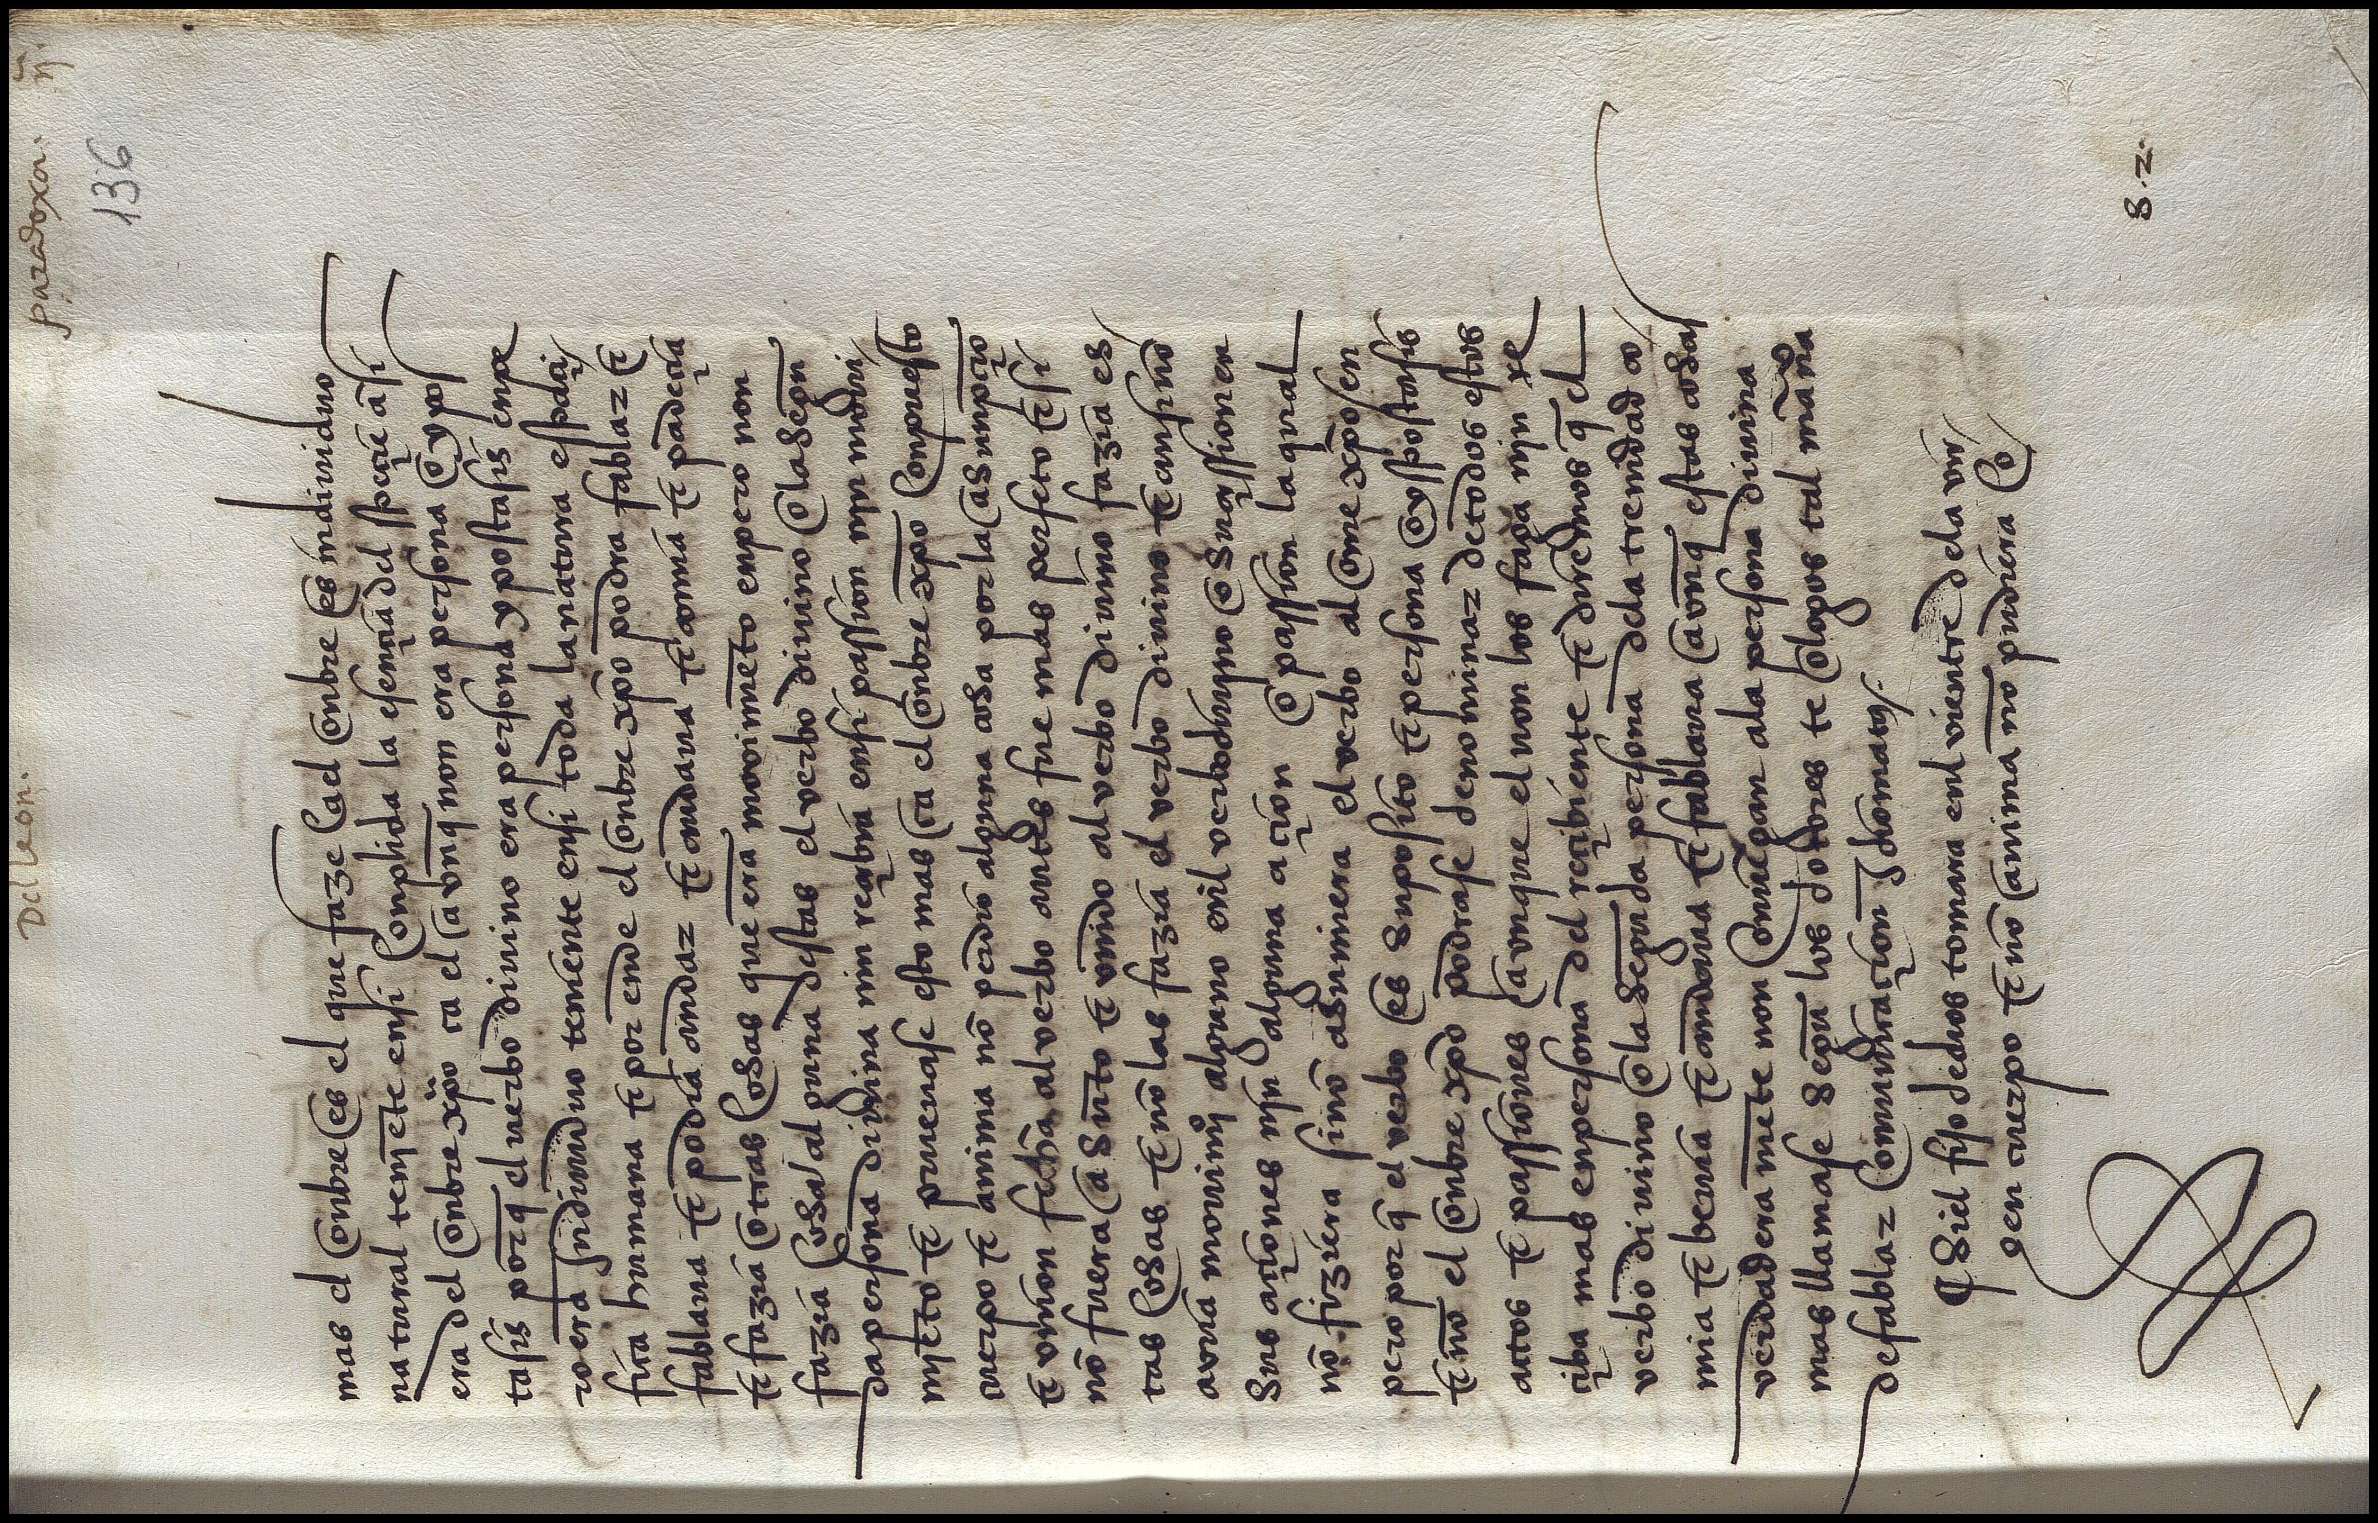 Del leon.
paradoxa. ij.
136
mas el honbre es el que faze ca el honbre es indiuiduo
natural temẽte ensi conplida la esençia del speçie asi
era del honbre xp̃o ca el avnq̃ non era persona o ypos
tasis porq̃ el uerbo diuino era persona ypostasis enpe
ro era indiuiduo temente ensi toda la natura espeçi
fica humana ⁊ por ende el honbre xp̃o podra fablar ⁊
fablaua ⁊ podia andar ⁊ andaua ⁊ comia ⁊ padeçia
⁊ fazia otras cosas que era mouimẽto enpero non
fazia cosa alguna destas el verbo diuino o la segun
da persona diuina nin reçebia ensi passion nin moui
mjẽto ⁊ prueuase esto mas ca el honbre xp̃o conpuesto
cuerpo ⁊ anima nõ perdio alguna cosa por la asunpçiõ
⁊ vnion fecha al verbo antes fue mas perfeto ⁊ si
nõ fuera asũto ⁊ vnido al verbo diuino fazia es
tas cosas ⁊ nõ las fazia el verbo diuino ⁊ ansi nõ
avria mouimjº alguno enl verbo diujno o suçession en
sus açiones nin alguna açion o passion la qual
nõ fiziera si nõ asumiera el verbo al honbre xp̃o en
pero por q̃ el verbo es suposito ⁊ persona o ypostasis
⁊ nõ el honbre xp̃o podrase denominar de todos estos
actos ⁊ passiones avnque el non los faga nin re
çiba mas en persona del reçibiente ⁊ diremos q̃ el
verbo diuino o la segunda persona dela trenidad co
mia ⁊ beuia ⁊ andaua ⁊ fablaua avnq̃ estas cosas
verdadera mẽte non conuẽgan ala persona diuina
mas llamase segun los dotores teologos tal manera
de fablar comunicaçion ydiomatũ.
¶ Si el fijo de dios tomara enl vientre dela vir
gen cuerpo ⁊ nõ anima nõ pudiera o
8.2.